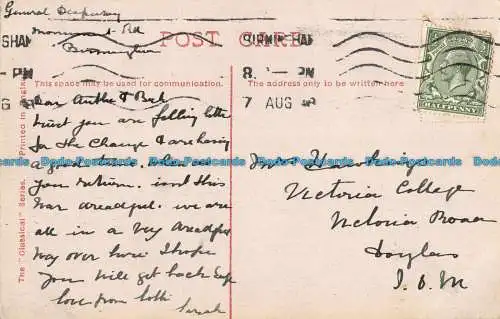 General
Monument Rd
Birmingham
POST CARD
This space may be used for communication.
The address only to be written here
BIRMINGHAM
8. PM
7 AUG
HALFPENNY
The "Classical" Series. Printed in
trust you are feeling better
for the Change & are having
a good time. when
you return. isnt this
War dreadful. we are
all in a very dreadful
way over here I hope
you will get back safe
love from both
Sarah
Mrs
Victoria College
Victoria Road
Douglas
I. O. M
Dodo-Postcards Dodo-Postcards Dodo-Postcards Dodo-Postcards Dodo-Postcards Dodo-Postcards